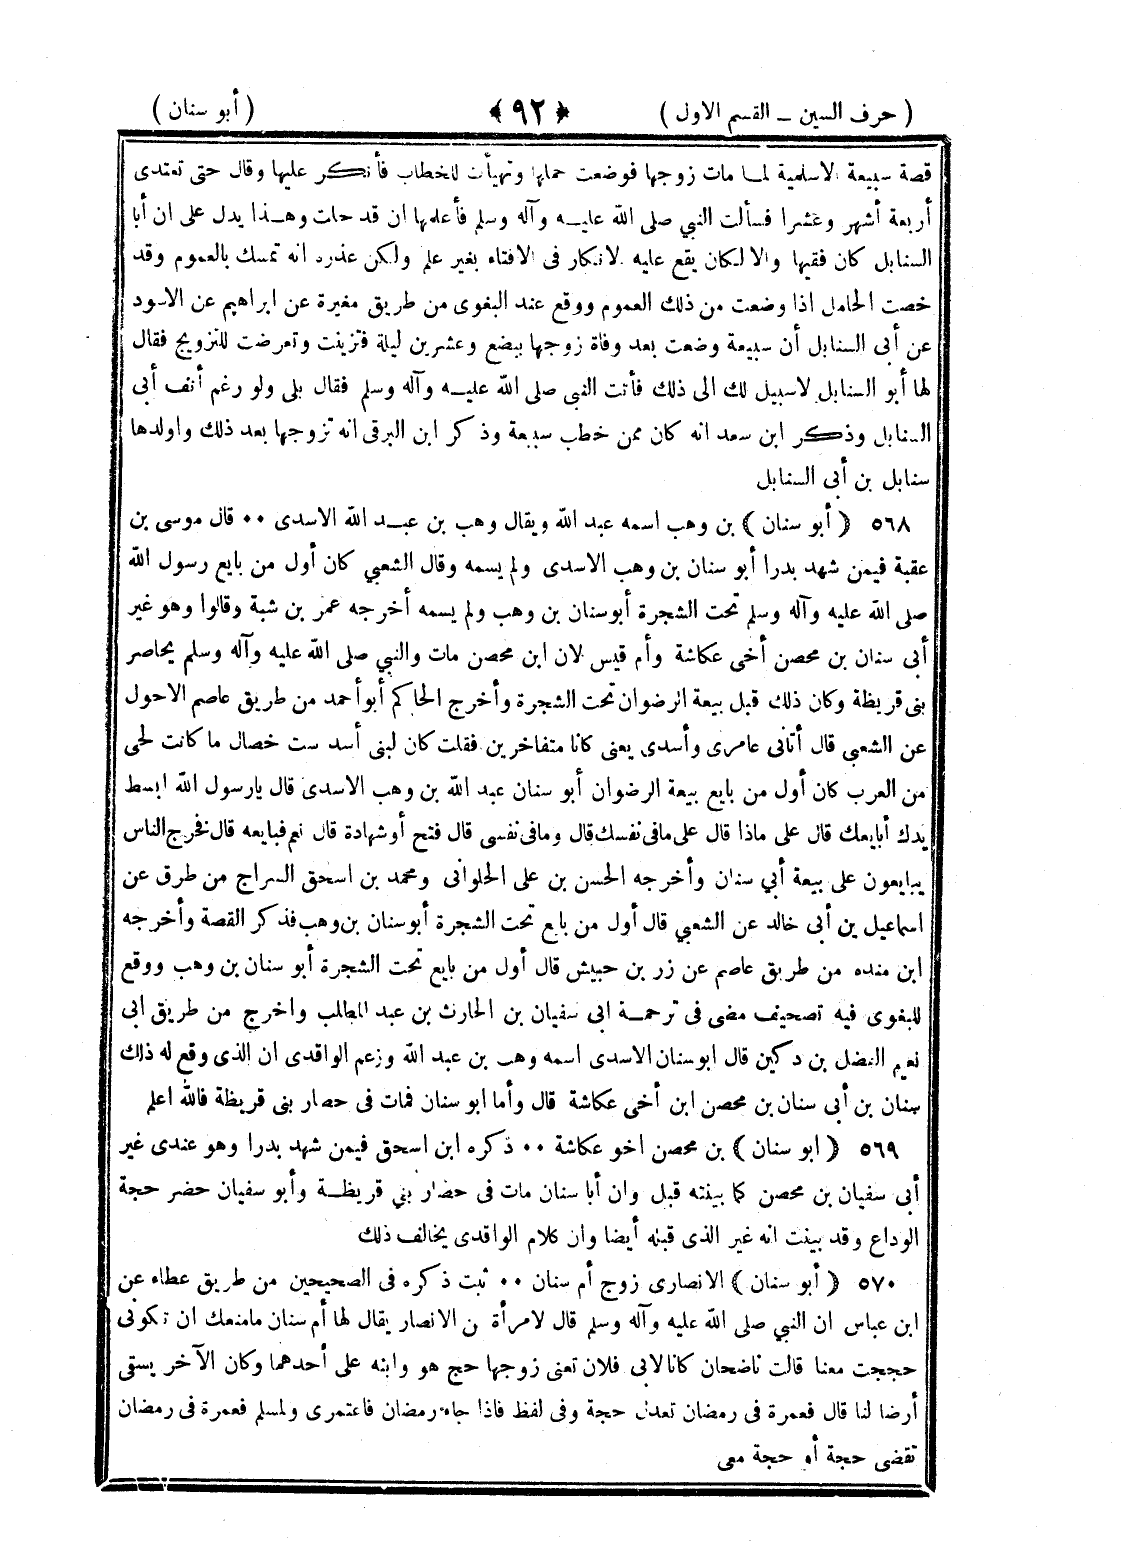 ( حرف السين ــ القسم الاول ) ﴿ ٩٢ ﴾ ( أبو سنان )
قصة سبيعة الاسلمية لما مات زوجها فوضعت حملها وتهيأت للخطاب فأنكر عليها وقال حتى تعتدى
أربعة أشهر وعشرا فسألت النبي صلى الله عليه وآله وسلم فأعلمها ان قد حلت وهذا يدل على ان أبا
السنابل كان فقيها والا لكان يقع عليه الانكار فى الافتاء بغير علم ولكن عذره انه تمسك بالعموم وقد
خصت الحامل اذا وضعت من ذلك العموم ووقع عند البغوى من طريق مغيرة عن ابراهيم عن الاسود
عن أبى السنابل أن سبيعة وضعت بعد وفاة زوجها ببضع وعشرين ليلة فتزينت وتعرضت للتزويج فقال
لها أبو السنابل لاسبيل لك الى ذلك فأتت النبى صلى الله عليه وآله وسلم فقال بلى ولو رغم أنف أبى
السنابل وذكر ابن سعد انه كان ممن خطب سبيعة وذكر ابن البرقى انه تزوجها بعد ذلك واولدها
سنابل بن أبى السنابل
٥٦٨ ﴿ أبو سنان ﴾ بن وهب اسمه عبد الله ويقال وهب بن عبد الله الاسدى ٠٠ قال موسى بن
عقبة فيمن شهد بدرا أبو سنان بن وهب الاسدى ولم يسمه وقال الشعبي كان أول من بايع رسول الله
صلى الله عليه وآله وسلم تحت الشجرة أبوسنان بن وهب ولم يسمه أخرجه عمر بن شبة وقالوا وهو غير
أبى سنان بن محصن أخى عكاشة وأم قيس لان ابن محصن مات والنبي صلى الله عليه وآله وسلم يحاصر
بنى قريظة وكان ذلك قبل بيعة الرضوان تحت الشجرة وأخرج الحاكم أبوأحمد من طريق عاصم الاحول
عن الشعبى قال أتانى عامرى وأسدى يعنى كانا متفاخرين فقلت كان لبنى أسد ست خصال ما كانت لحى
من العرب كان أول من بايع بيعة الرضوان أبو سنان عبد الله بن وهب الاسدى قال يارسول الله ابسط
يدك أبايعك قال على ماذا قال على مافى نفسك قال ومافى نفسى قال فتح أوشهادة قال نعم فبايعه قال فخرج الناس
يبايعون على بيعة أبي سنان وأخرجه الحسن بن على الحلوانى ومحمد بن اسحق السراج من طرق عن
اسماعيل بن أبى خالد عن الشعبي قال أول من بايع تحت الشجرة أبوسنان بن وهب فذكر القصة وأخرجه
ابن منده من طريق عاصم عن زر بن حبيش قال أول من بايع تحت الشجرة أبو سنان بن وهب ووقع
للبغوى فيه تصحيف مضى فى ترجمة ابى سفيان بن الحارث بن عبد المطلب واخرج من طريق ابى
نعيم الفضل بن دكين قال ابوسنان الاسدى اسمه وهب بن عبد الله وزعم الواقدى ان الذى وقع له ذلك
سنان بن أبى سنان بن محصن ابن أخى عكاشة قال وأما ابو سنان فمات فى حصار بنى قريظة فالله اعلم
٥٦٩ ﴿ ابو سنان ﴾ بن محصن اخو عكاشة ٠٠ ذكره ابن اسحق فيمن شهد بدرا وهو عندى غير
أبى سفيان بن محصن كما بينته قبل وان أبا سنان مات فى حصار بني قريظة وأبو سفيان حضر حجة
الوداع وقد بينت انه غير الذى قبله أيضا وان كلام الواقدى يخالف ذلك
٥٧٠ ﴿ أبو سنان ﴾ الانصارى زوج أم سنان ٠٠ ثبت ذكره فى الصحيحين من طريق عطاء عن
ابن عباس ان النبي صلى الله عليه وآله وسلم قال لامرأة من الانصار يقال لها أم سنان مامنعك ان تكونى
حججت معنا قالت ناضحان كانا لابى فلان تعنى زوجها حج هو وابنه على أحدهما وكان الآخر يسقى
أرضا لنا قال فعمرة فى رمضان تعدل حجة وفى لفظ فاذا جاء رمضان فاعتمرى ولمسلم فعمرة فى رمضان
تقضى حجة أو حجة معى